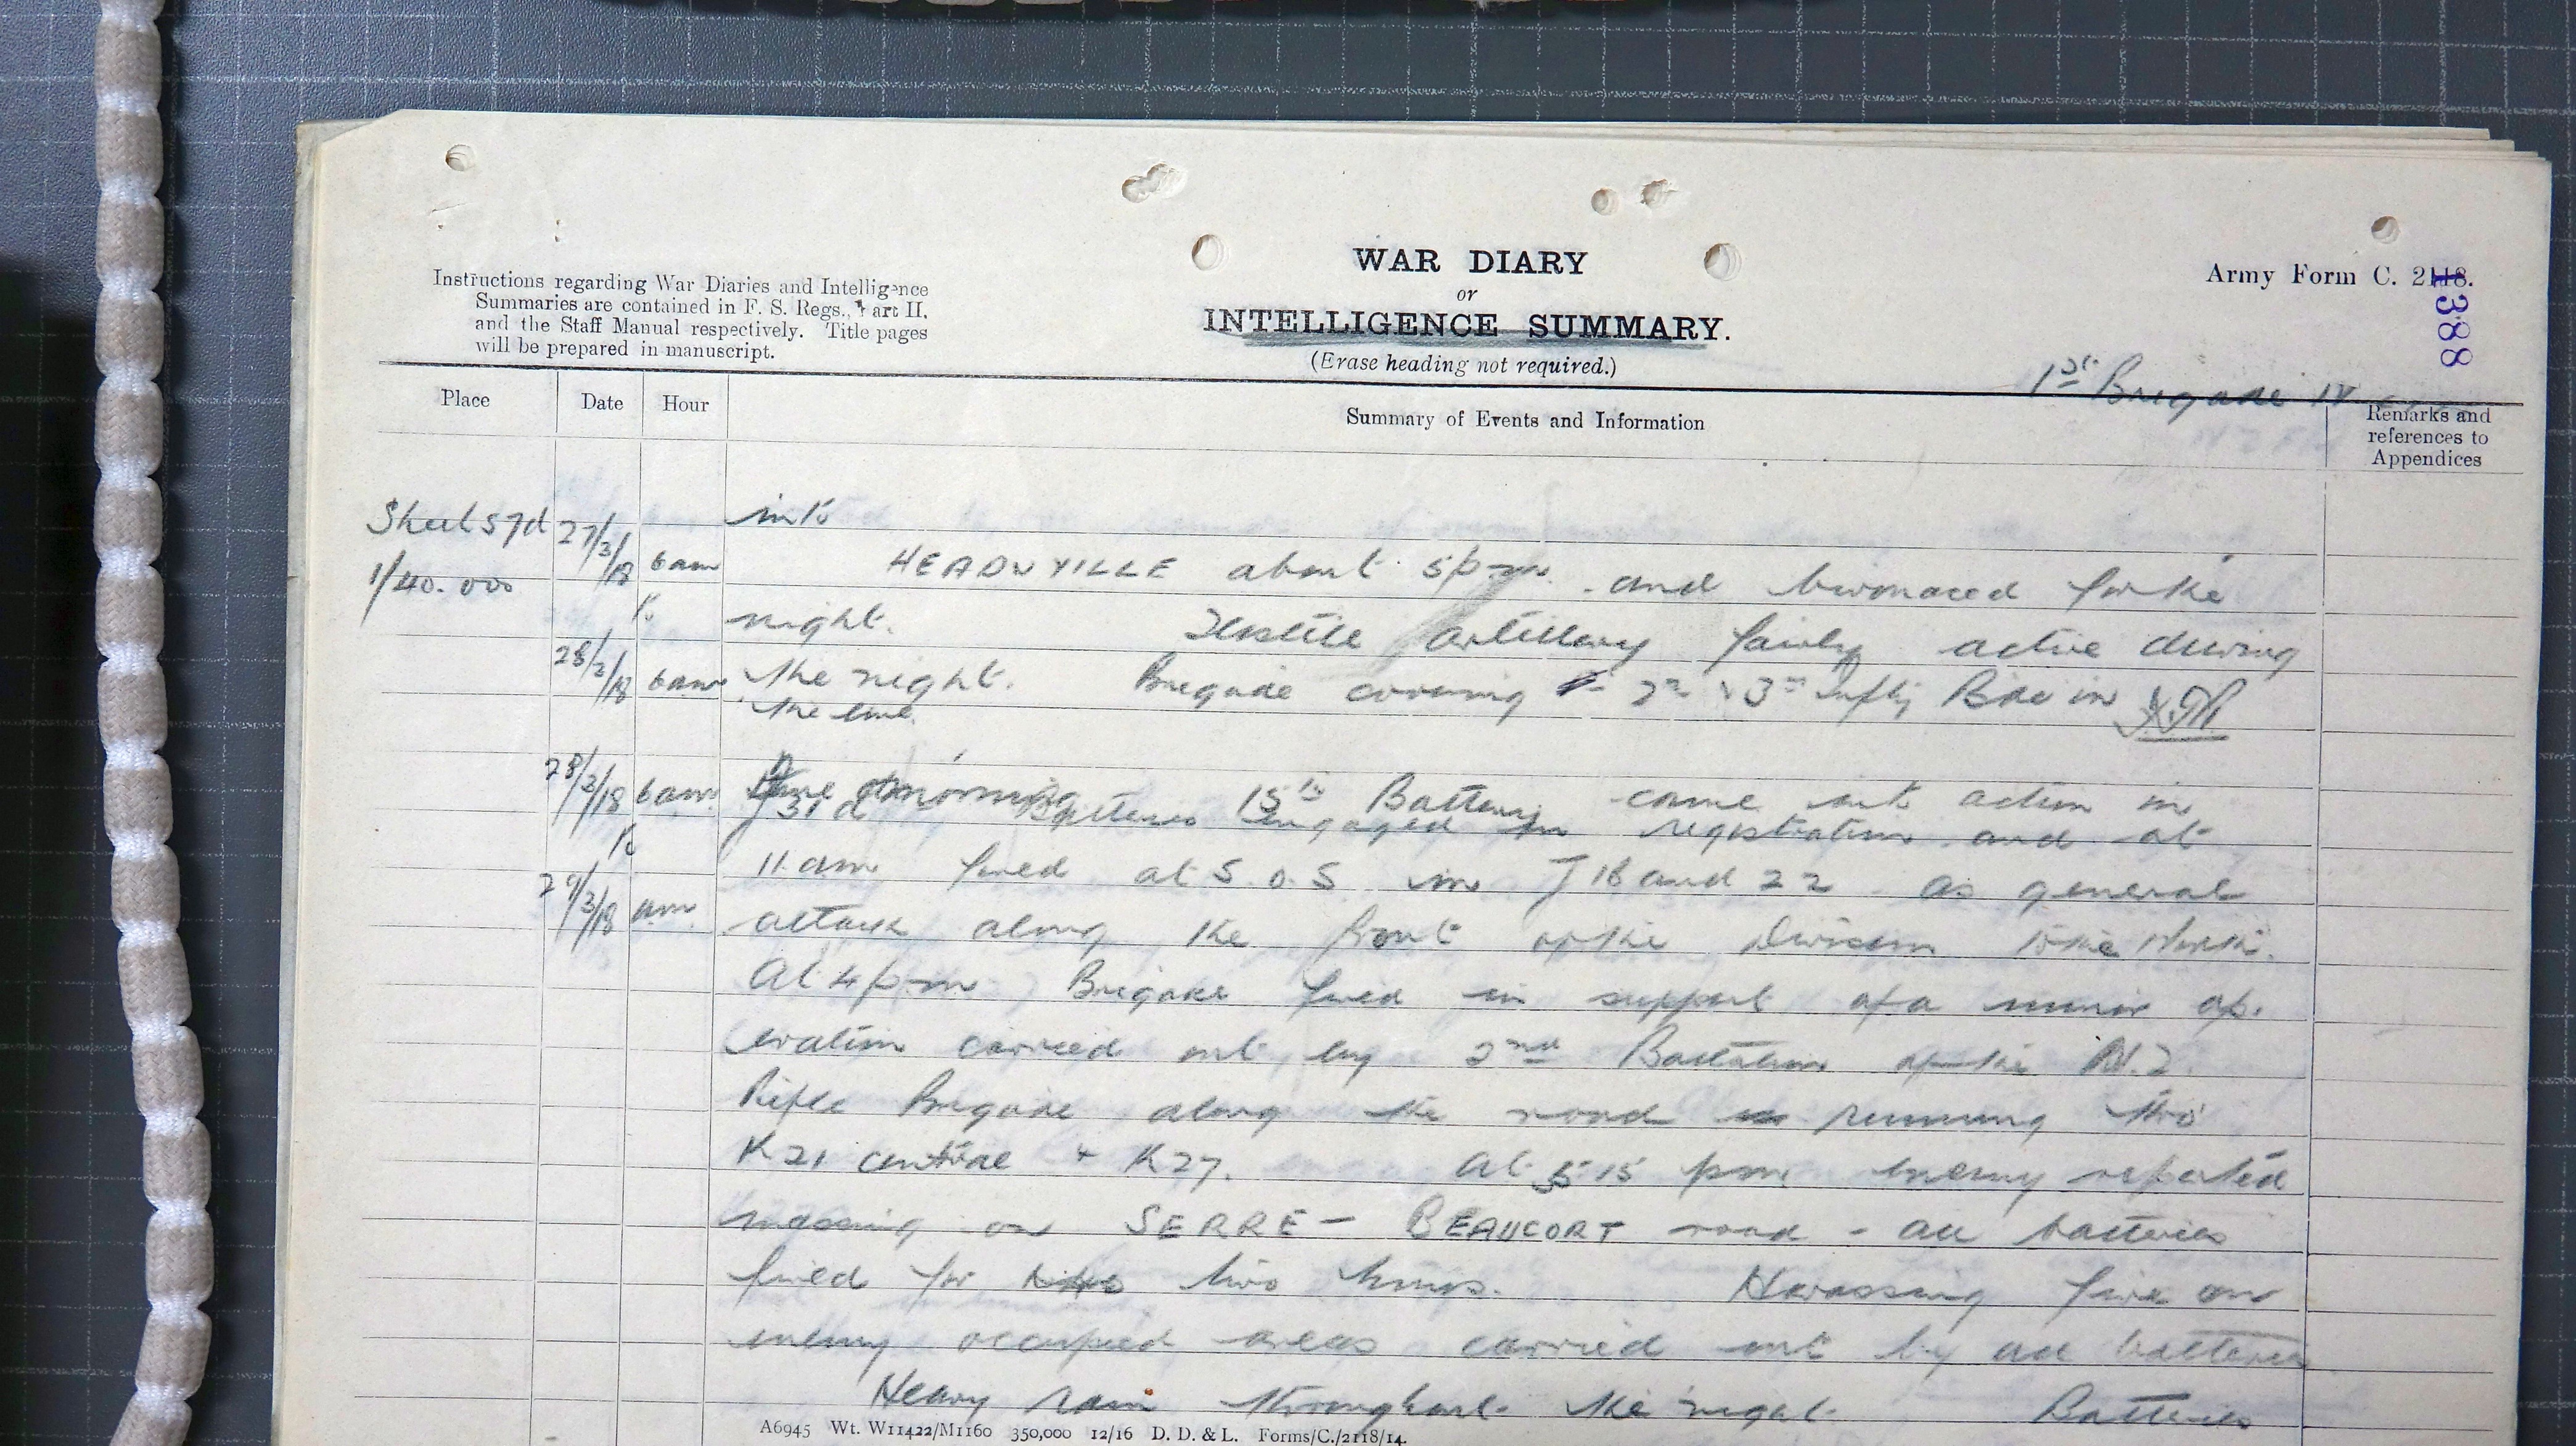 Instructions regarding War Diaries and Intelligence
Summaries are contained in F. S. Regs., Part II.
and the Staff Manual respectively. Title pages
will be prepared in manuscript.
WAR DIARY
or
INTELLIGENCE SUMMARY.
(Erase heading not required.)
Army Form C. 2118.
1388
1st Brigade
Place
Date
Hour
Summary of Events and Information
Remarks and
references to
Appendices
Sheet 57d
1/40.000
27/3/18 6am
to
28/3/18 6am
into
HEADUVILLE about 5pm and bivouaced for the
night. Hostile artillery fairly active during
the night. Brigade covering 2nd & 3rd Inftry Bde in
the line.
28/3/18 6am
to
29/3/18 am
morning 15th Battery came into action in
J 31 d Batteries engaged in registration and at
11 am fired at S.O.S in J 16 and 22 as general
attack along the front of the Division to the North.
At 4 pm Brigade fired in support of a minor op-
eration carried out by 2nd Battalion of the N.Z.
Rifle Brigade along the road running thro'
K 21 central + K 27. At 5.15 pm enemy reported
massing on SERRE - BEAUCORT road - all batteries
fired for two hours. Harassing fire on
enemy occupied areas carried out by all batteries
Heavy rain throughout the night. Batteries
A6945 Wt. W11422/M1160 350,000 12/16 D. D. & L. Forms/C./2118/14.